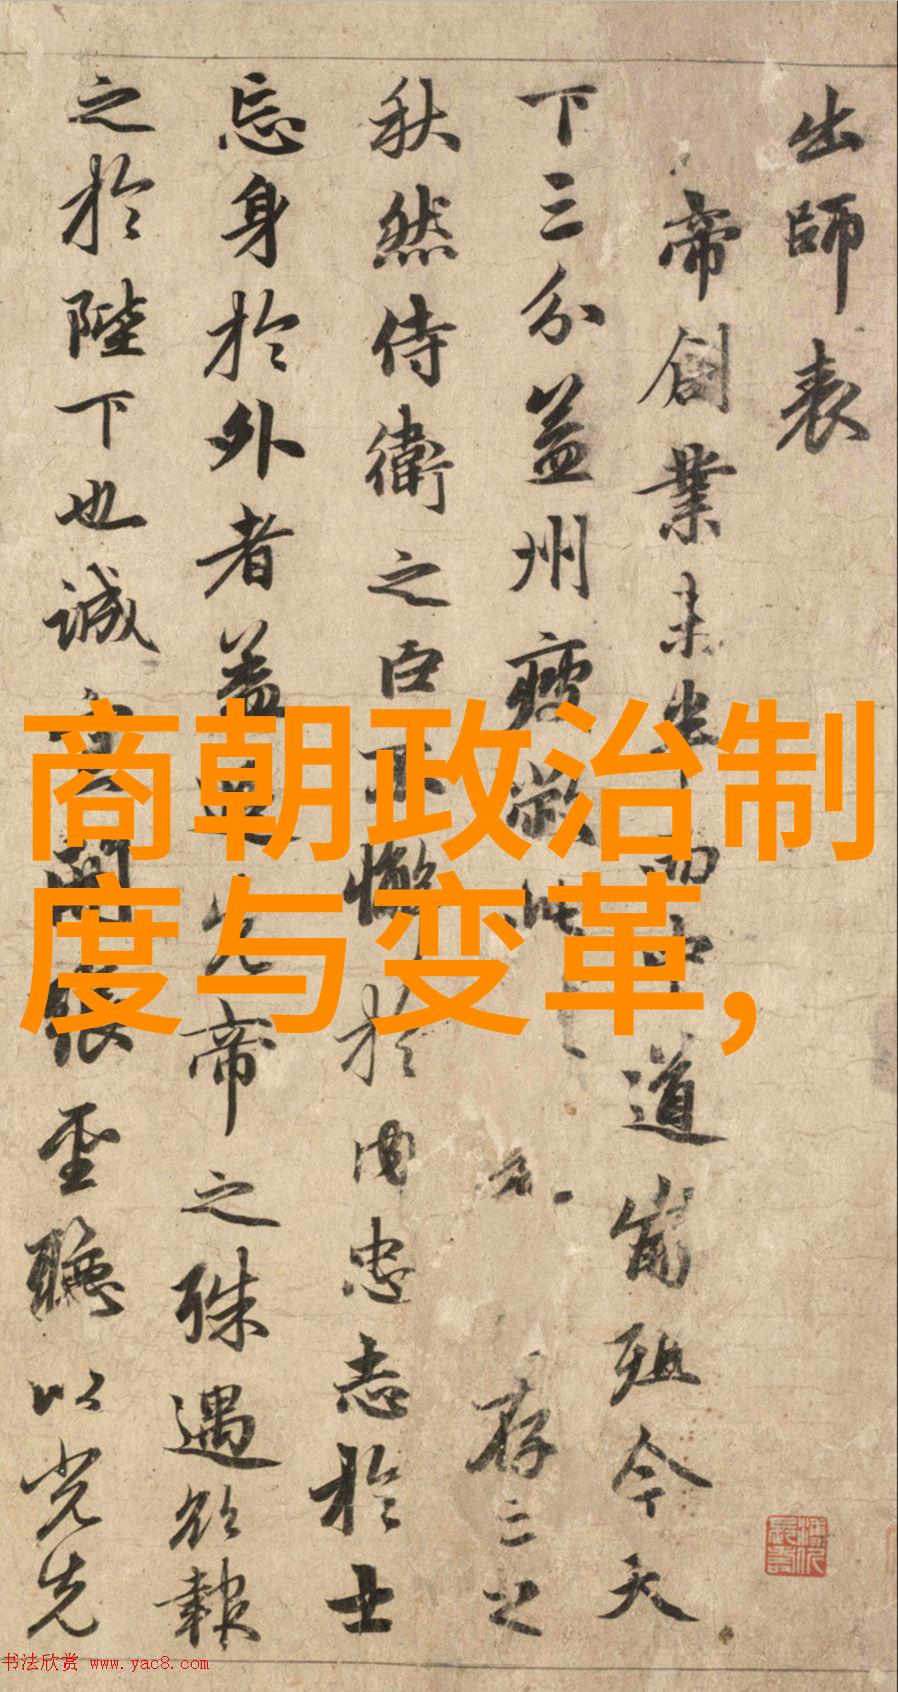 出師表
帝創業未半而中道崩殂今天
下三分益州疲敝此存亡之
秋然侍衛之臣不懈於内忠志於士
忘身於外者蓋追先帝之殊遇欲報
之於陛下也誠宜開張聖聽以光先
商朝政治制
度与变革,
书法欣赏 www.yac8.com